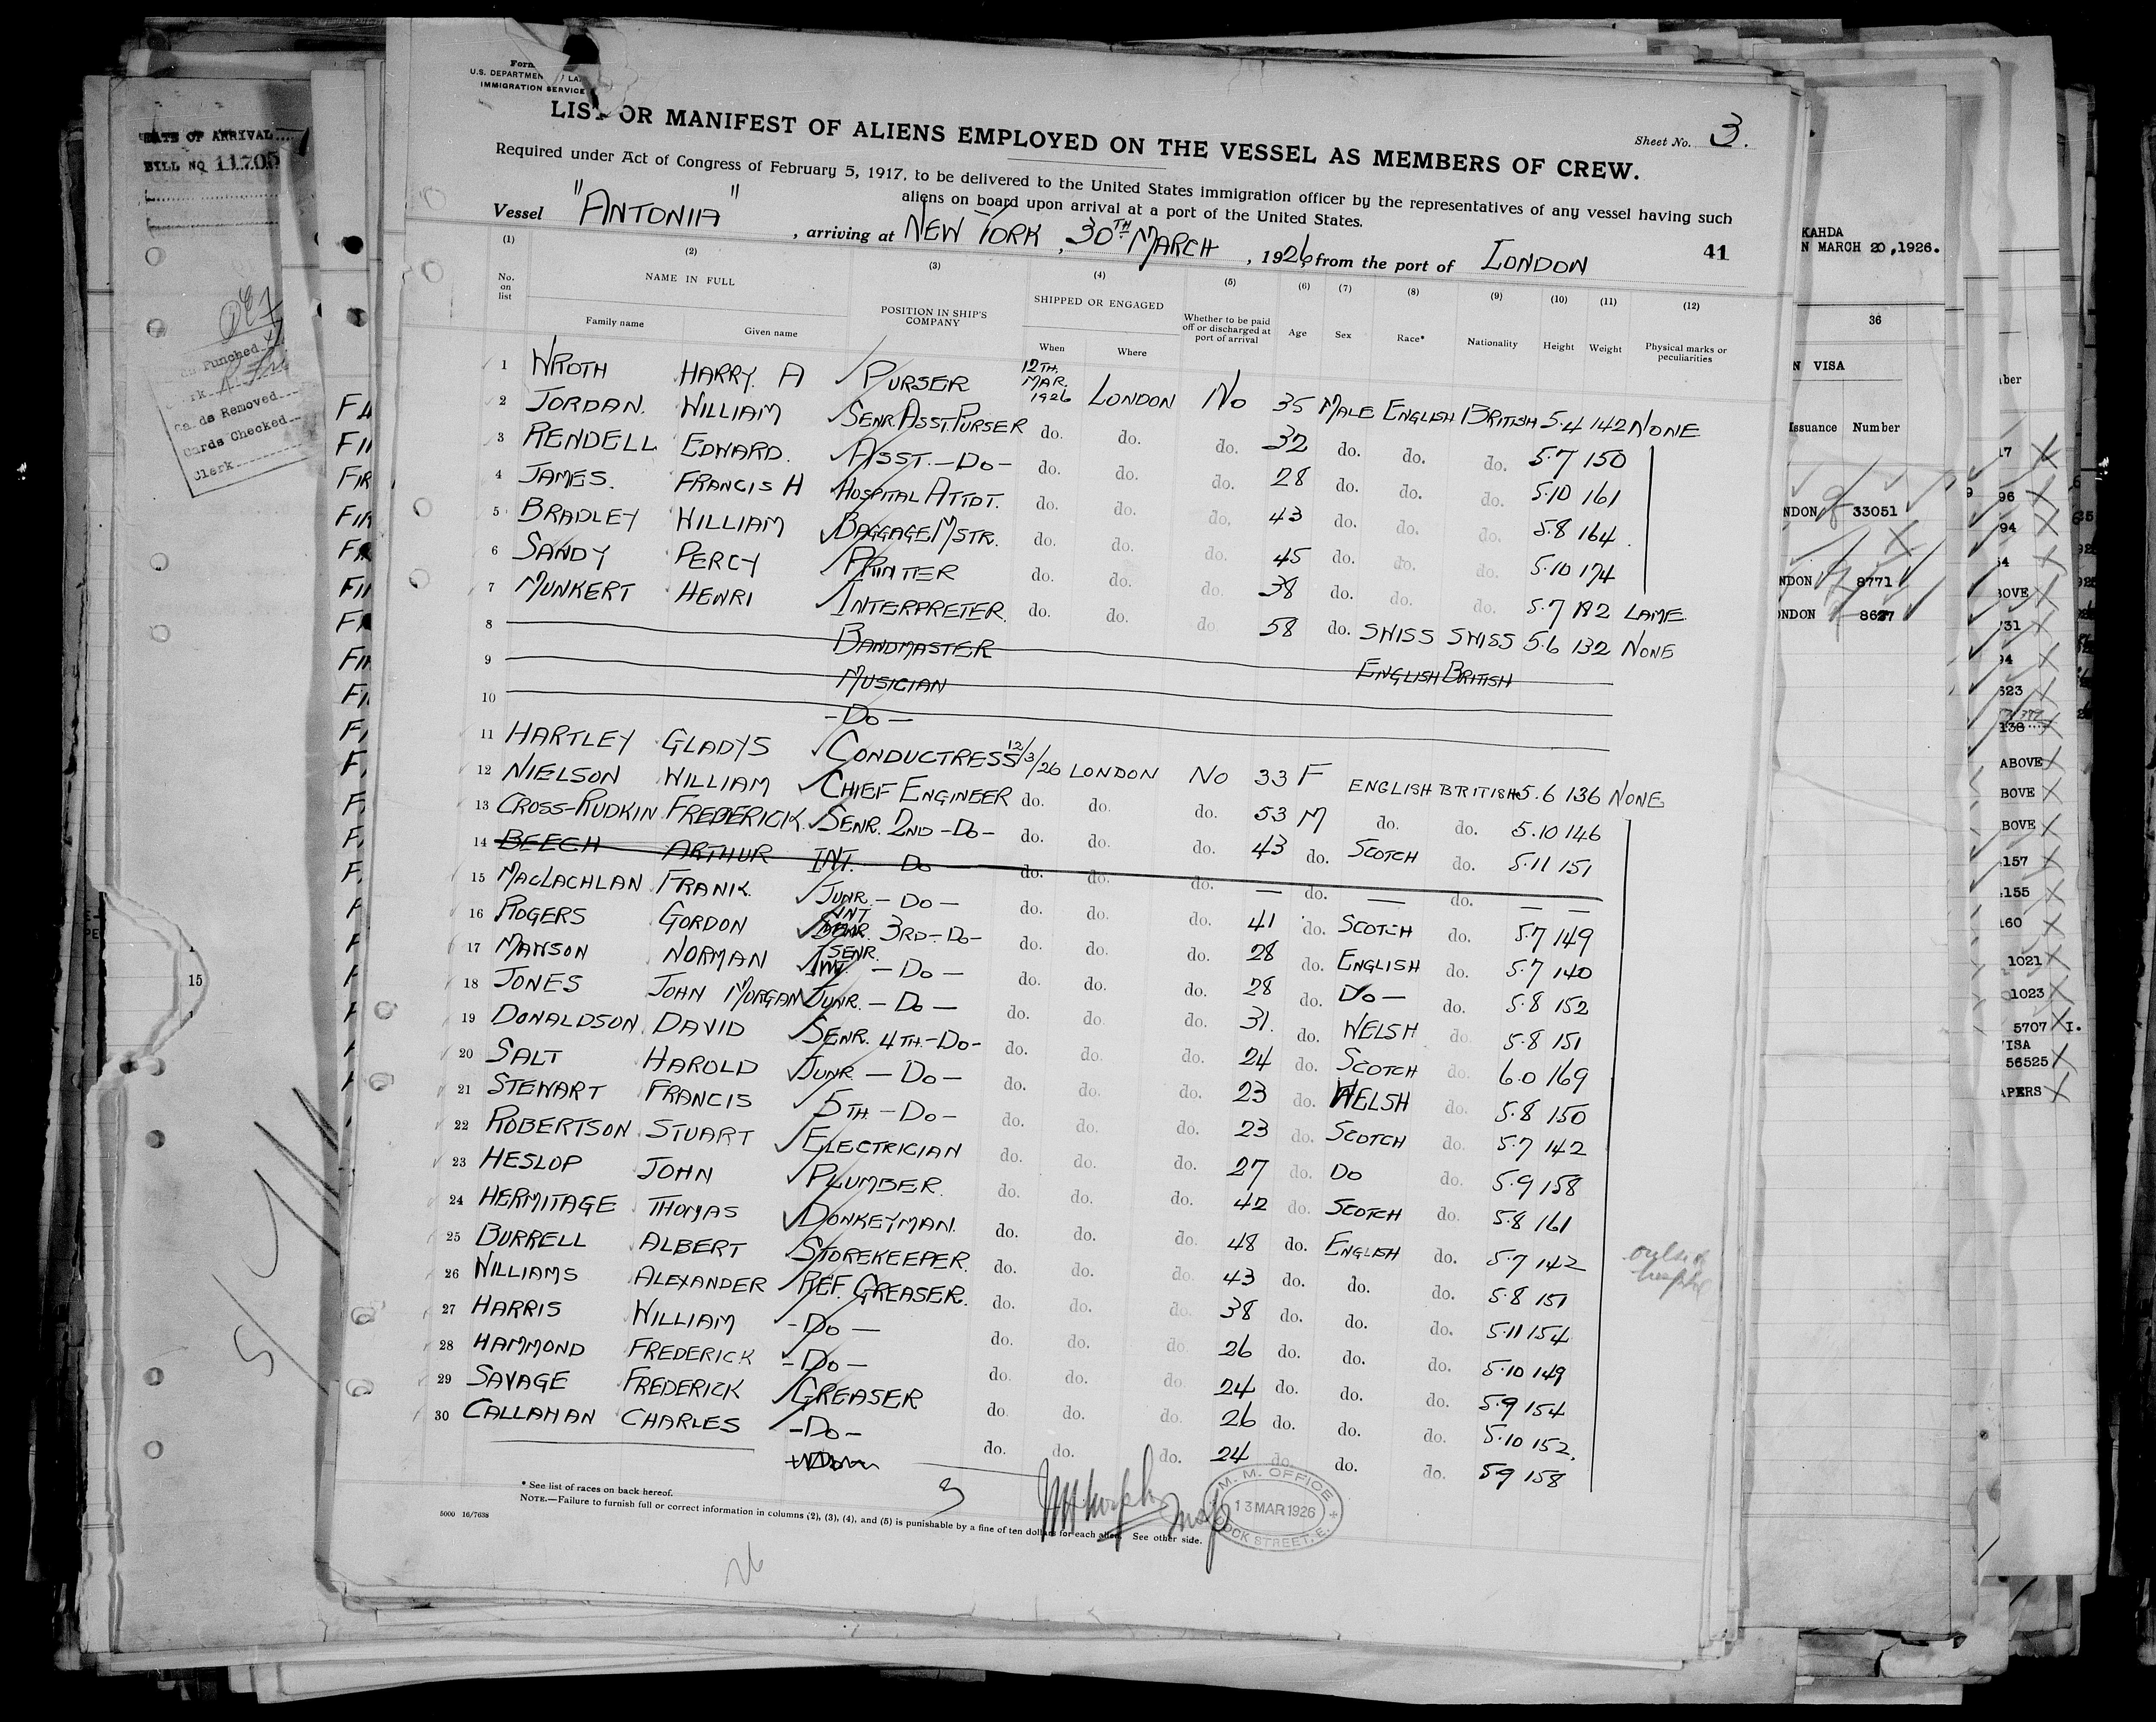 Form
U.S. DEPARTMENT LA
IMMIGRATION SERVICE
LIST OR MANIFEST OF ALIENS EMPLOYED ON THE VESSEL AS MEMBERS OF CREW.
Sheet No. 3.
Required under Act of Congress of February 5, 1917, to be delivered to the United States immigration officer by the representatives of any vessel having such
aliens on board upon arrival at a port of the United States.
Vessel "ANTONIA", arriving at NEW YORK, 30TH MARCH, 1926, from the port of LONDON
41
(1) (2) (3) (4) (5) (6) (7) (8) (9) (10) (11) (12)
No. on list NAME IN FULL POSITION IN SHIP'S COMPANY SHIPPED OR ENGAGED Whether to be paid off or discharged at port of arrival Age Sex Race* Nationality Height Weight Physical marks or peculiarities
Family name Given name When Where
1 WROTH HARRY. A PURSER 12TH. MAR. 1926 LONDON NO 35 MALE ENGLISH BRITISH 5.4 142 NONE
2 JORDAN. WILLIAM SENR. ASST. PURSER do. do. do. 32 do. do. do. 5.7 150
3 RENDELL. EDWARD. ASST. - DO - do. do. do. 28 do. do. do. 5.10 161
4 JAMES. FRANCIS H HOSPITAL ATTDT. do. do. do. 43 do. do. do. 5.8 164
5 BRADLEY WILLIAM BAGGAGE MSTR. do. do. do. 45 do. do. do. 5.10 174
6 SANDY PERCY PRINTER do. do. do. 38 do. do. do. 5.7 182 LAME.
7 MUNKERT HENRI INTERPRETER. do. do. do. 58 do. SWISS SWISS 5.6 132 NONE
8 BANDMASTER ENGLISH BRITISH
9 MUSICIAN
10 - DO -
11 HARTLEY GLADYS CONDUCTRESS 12/3/26 LONDON NO 33 F ENGLISH BRITISH 5.6 136 NONE
12 NIELSON WILLIAM CHIEF ENGINEER do. do. do. 53 M do. do. 5.10 146
13 CROSS-RUDKIN FREDERICK. SENR. 2ND - DO - do. do. do. 43 do. SCOTCH do. 5.11 151
14 BEECH ARTHUR INT. DO do. do. do. — do. — do. — —
15 MACLACHLAN FRANK. JUNR. - DO - do. do. do. 41 do. SCOTCH do. 5.7 149
16 ROGERS GORDON INT 3RD - DO - do. do. do. 28 do. ENGLISH do. 5.7 140
17 MAWSON NORMAN SENR. INT - DO - do. do. do. 28 do. DO - do. 5.8 152
18 JONES JOHN MORGAN JUNR. - DO - do. do. do. 31. do. WELSH do. 5.8 151
19 DONALDSON DAVID SENR. 4TH. - DO - do. do. do. 24 do. SCOTCH do. 6.0 169
20 SALT HAROLD JUNR. - DO - do. do. do. 23 do. WELSH do. 5.8 150
21 STEWART FRANCIS 5TH - DO - do. do. do. 23 do. SCOTCH do. 5.7 142
22 ROBERTSON STUART ELECTRICIAN do. do. do. 27 do. DO do. 5.9 158
23 HESLOP JOHN PLUMBER. do. do. do. 42 do. SCOTCH do. 5.8 161
24 HERMITAGE THOMAS DONKEYMAN. do. do. do. 48 do. ENGLISH do. 5.7 142
25 BURRELL ALBERT STOREKEEPER. do. do. do. 43 do. do. do. 5.8 151
26 WILLIAMS ALEXANDER REF. GREASER. do. do. do. 38 do. do. do. 5.11 154
27 HARRIS WILLIAM - DO - do. do. do. 26 do. do. do. 5.10 149
28 HAMMOND FREDERICK - DO - do. do. do. 24 do. do. do. 5.9 154
29 SAVAGE FREDERICK GREASER do. do. do. 26 do. do. do. 5.10 152.
30 CALLAHAN CHARLES - DO - do. do. do. 24 do. do. do. 5.9 158
* See list of races on back hereof.
NOTE.—Failure to furnish full or correct information in columns (2), (3), (4), and (5) is punishable by a fine of ten dollars for each alien. See other side.
5000 16/7638
3
M. M. OFFICE
13 MAR 1926
DOCK STREET, E.
26
DATE OF ARRIVAL
BILL NO 11705
Punched
Cards Removed
Cards Checked
Clerk
15
KAHDA
N MARCH 20, 1926.
36
N VISA
Issuance Number
NDON 33051
NDON 8771
ONDON 8627
ber
17
96
94
BOVE
731
94
623
138
ABOVE
BOVE
BOVE
157
155
160
1021
1023
5707 I.
VISA
56525
APERS